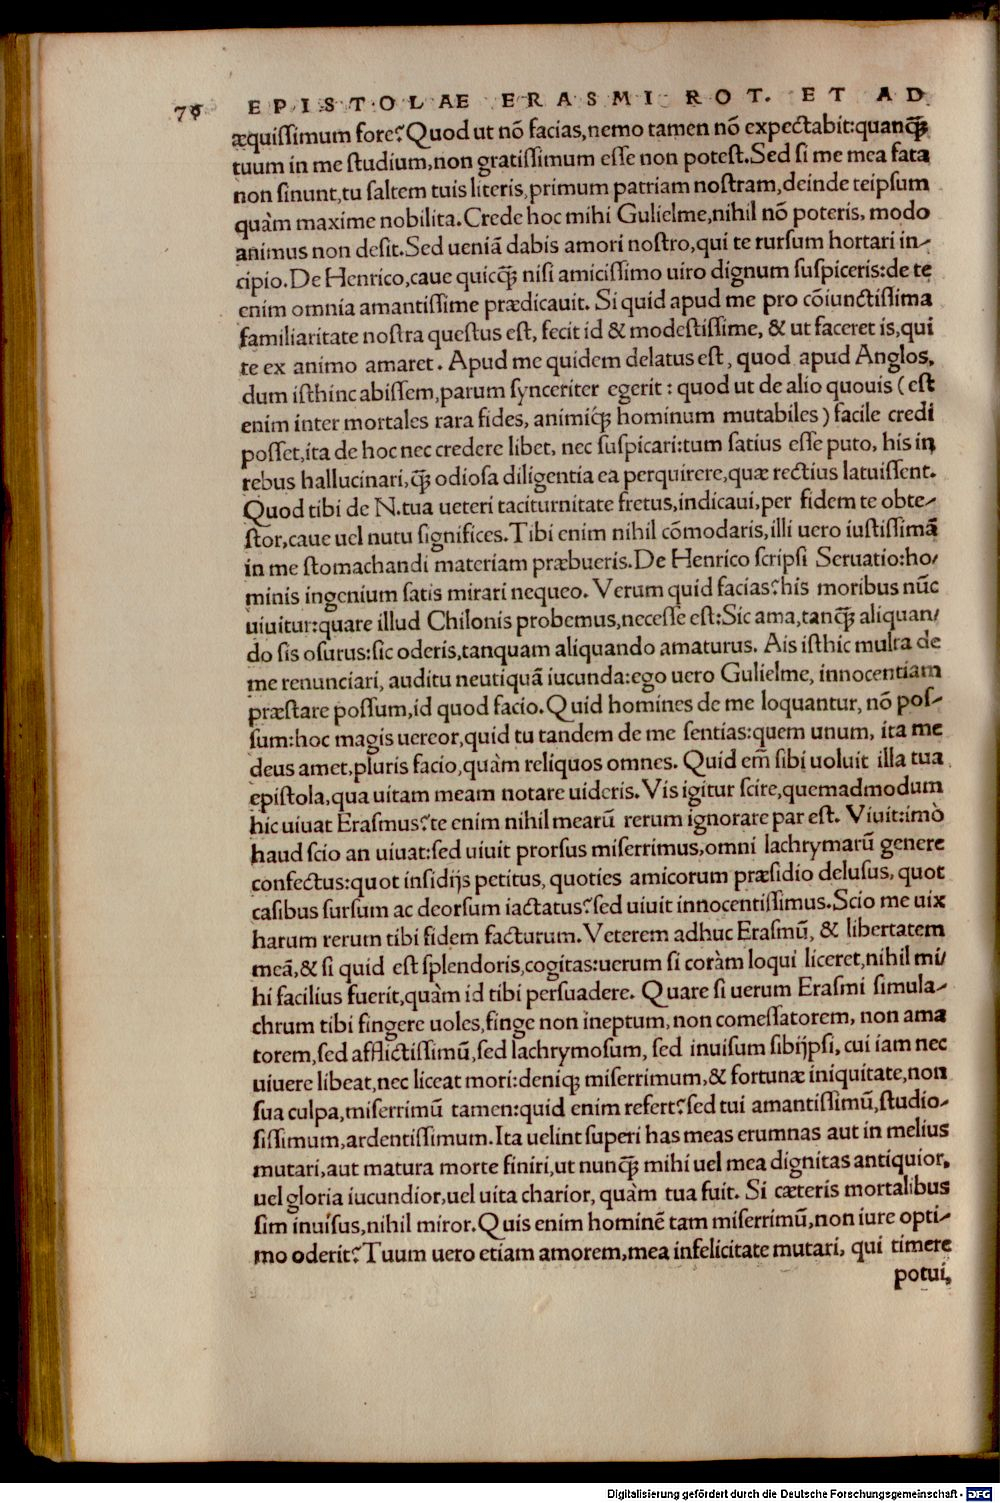 76 EPISTOLAE ERASMI ROT. ET AD
æquissimum fore? Quod ut nõ facias, nemo tamen nõ expectabit: quanq̃
tuum in me studium, non gratissimum esse non potest. Sed si me mea fata
non sinunt, tu saltem tuis literis, primum patriam nostram, deinde teipsum
quàm maxime nobilita. Crede hoc mihi Gulielme, nihil nõ poteris, modo
animus non desit. Sed ueniã dabis amori nostro, qui te rursum hortari in-
cipio. De Henrico, caue quicq̃ nisi amicissimo uiro dignum suspiceris: de te
enim omnia amantissime prædicauit. Si quid apud me pro cõiunctissima
familiaritate nostra questus est, fecit id & modestissime, & ut faceret is, qui
te ex animo amaret. Apud me quidem delatus est, quod apud Anglos,
dum isthinc abissem, parum synceriter egerit: quod ut de alio quouis (est
enim inter mortales rara fides, animiq; hominum mutabiles) facile credi
posset, ita de hoc nec credere libet, nec suspicari: tum satius esse puto, his in
rebus hallucinari, q̃ odiosa diligentia ea perquirere, quæ rectius latuissent.
Quod tibi de N. tua ueteri taciturnitate fretus, indicaui, per fidem te obte-
stor, caue uel nutu significes. Tibi enim nihil cõmodaris, illi uero iustissimã
in me stomachandi materiam præbueris. De Henrico scripsi Seruatio: ho-
minis ingenium satis mirari nequeo. Verum quid facias? his moribus nũc
uiuitur: quare illud Chilonis probemus, necesse est: Sic ama, tanq̃ aliquan-
do sis osurus: sic oderis, tanquam aliquando amaturus. Ais isthic multa de
me renunciari, auditu neutiquã iucunda: ego uero Gulielme, innocentiam
præstare possum, id quod facio. Quid homines de me loquantur, nõ pos-
sum: hoc magis uereor, quid tu tandem de me sentias: quem unum, ita me
deus amet, pluris facio, quàm reliquos omnes. Quid em̃ sibi uoluit illa tua
epistola, qua uitam meam notare uideris. Vis igitur scire, quemadmodum
hic uiuat Erasmus? te enim nihil mearũ rerum ignorare par est. Viuit: imò
haud scio an uiuat: sed uiuit prorsus miserrimus, omni lachrymarũ genere
confectus: quot insidijs petitus, quoties amicorum præsidio delusus, quot
casibus sursum ac deorsum iactatus? sed uiuit innocentissimus. Scio me uix
harum rerum tibi fidem facturum. Veterem adhuc Erasmũ, & libertatem
meã, & si quid est splendoris, cogitas: uerum si coràm loqui liceret, nihil mi-
hi facilius fuerit, quàm id tibi persuadere. Quare si uerum Erasmi simula-
chrum tibi fingere uoles, finge non ineptum, non comessatorem, non ama
torem, sed afflictissimũ, sed lachrymosum, sed inuisum sibijpsi, cui iam nec
uiuere libeat, nec liceat mori: deniq; miserrimum, & fortunæ iniquitate, non
sua culpa, miserrimũ tamen: quid enim refert? sed tui amantissimũ, studio-
sissimum, ardentissimum. Ita uelint superi has meas erumnas aut in melius
mutari, aut matura morte finiri, ut nunq̃ mihi uel mea dignitas antiquior,
uel gloria iucundior, uel uita charior, quàm tua fuit. Si cæteris mortalibus
sim inuisus, nihil miror. Quis enim hominẽ tam miserrimũ, non iure opti-
mo oderit? Tuum uero etiam amorem, mea infelicitate mutari, qui timere
potui,
Digitalisierung gefördert durch die Deutsche Forschungsgemeinschaft - DFG